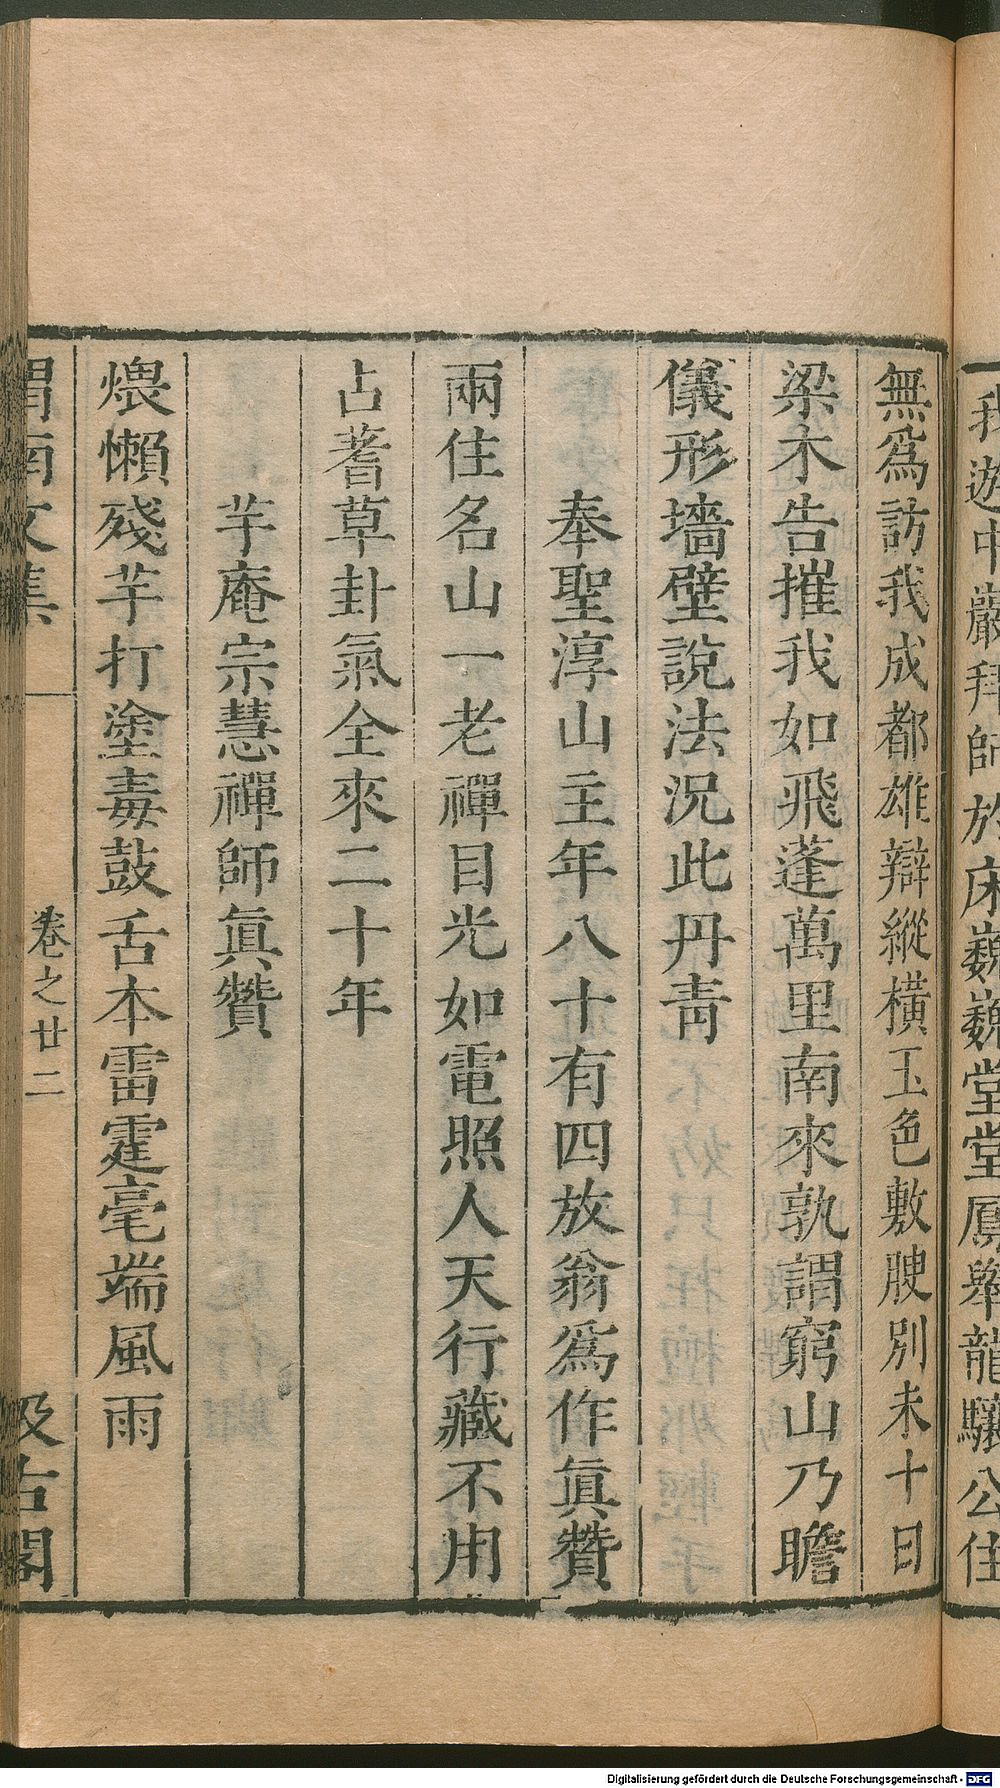 我遊中巖拜師於床巍巍堂堂鳳舉龍驤公住
無爲訪我成都雄辯縱橫玉色敷腴別未十日
梁木告摧我如飛蓬萬里南來孰謂窮山乃瞻
儀形墻壁說法況此丹靑
奉聖淳山主年八十有四放翁爲作眞贊
兩住名山一老禪目光如電照人天行藏不用
占蓍草卦氣全來二十年
芋庵宗慧禪師眞贊
煨懶殘芋打塗毒鼓舌本雷霆毫端風雨
渭南文集 卷之廿二 汲古閣
Digitalisierung gefördert durch die Deutsche Forschungsgemeinschaft - DFG